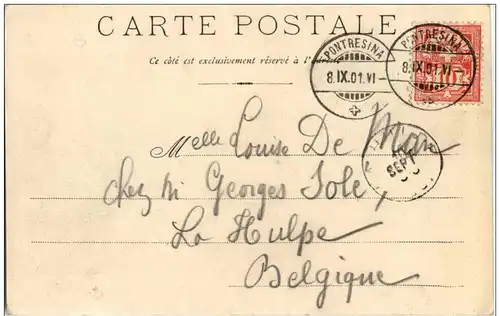 CARTE POSTALE
Ce côté est exclusivement réservé à l'adresse
PONTRESINA
8.IX.01.VI
PONTRESINA
8.IX.01.VI
10
Melle Louise De Man
SEPT
chez Mr Georges Sole,
La Hulpe
Belgique